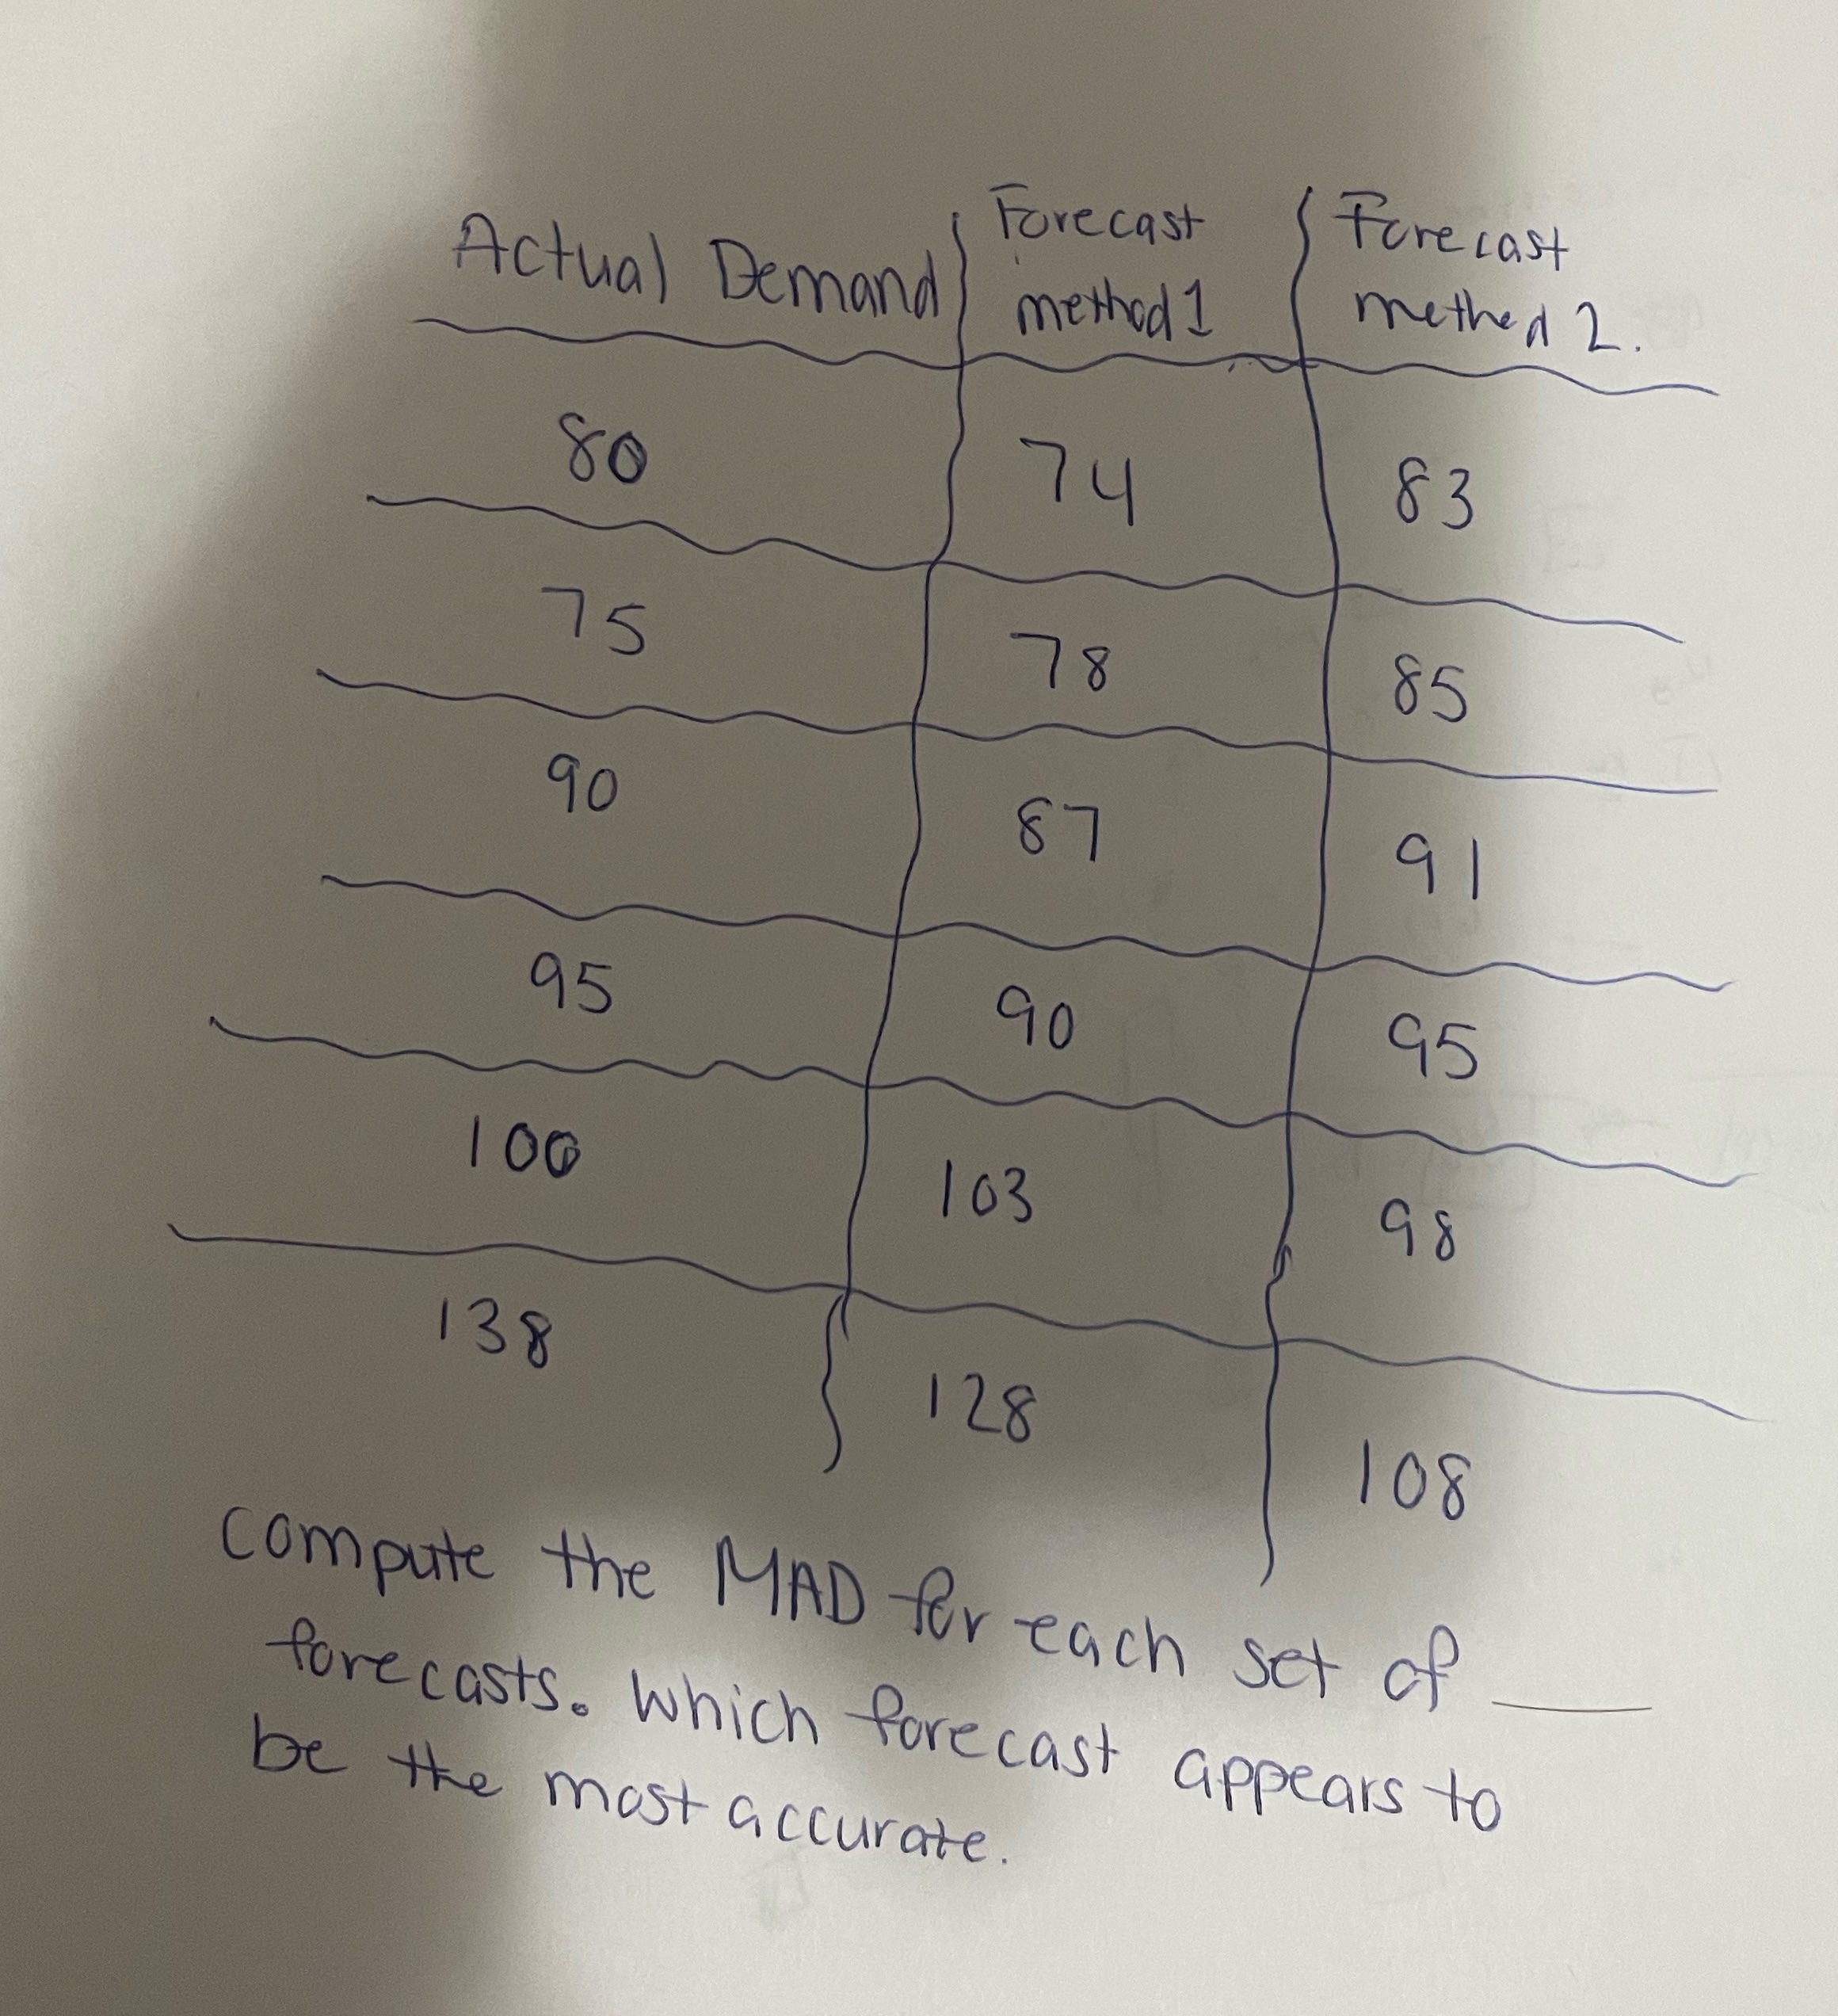 Actual Demand | Forecast method 1 | Forecast method 2.
80 | 74 | 83
75 | 78 | 85
90 | 87 | 91
95 | 90 | 95
100 | 103 | 98
138 | 128 | 108
compute the MAD for each set of
forecasts. Which forecast appears to
be the most accurate.